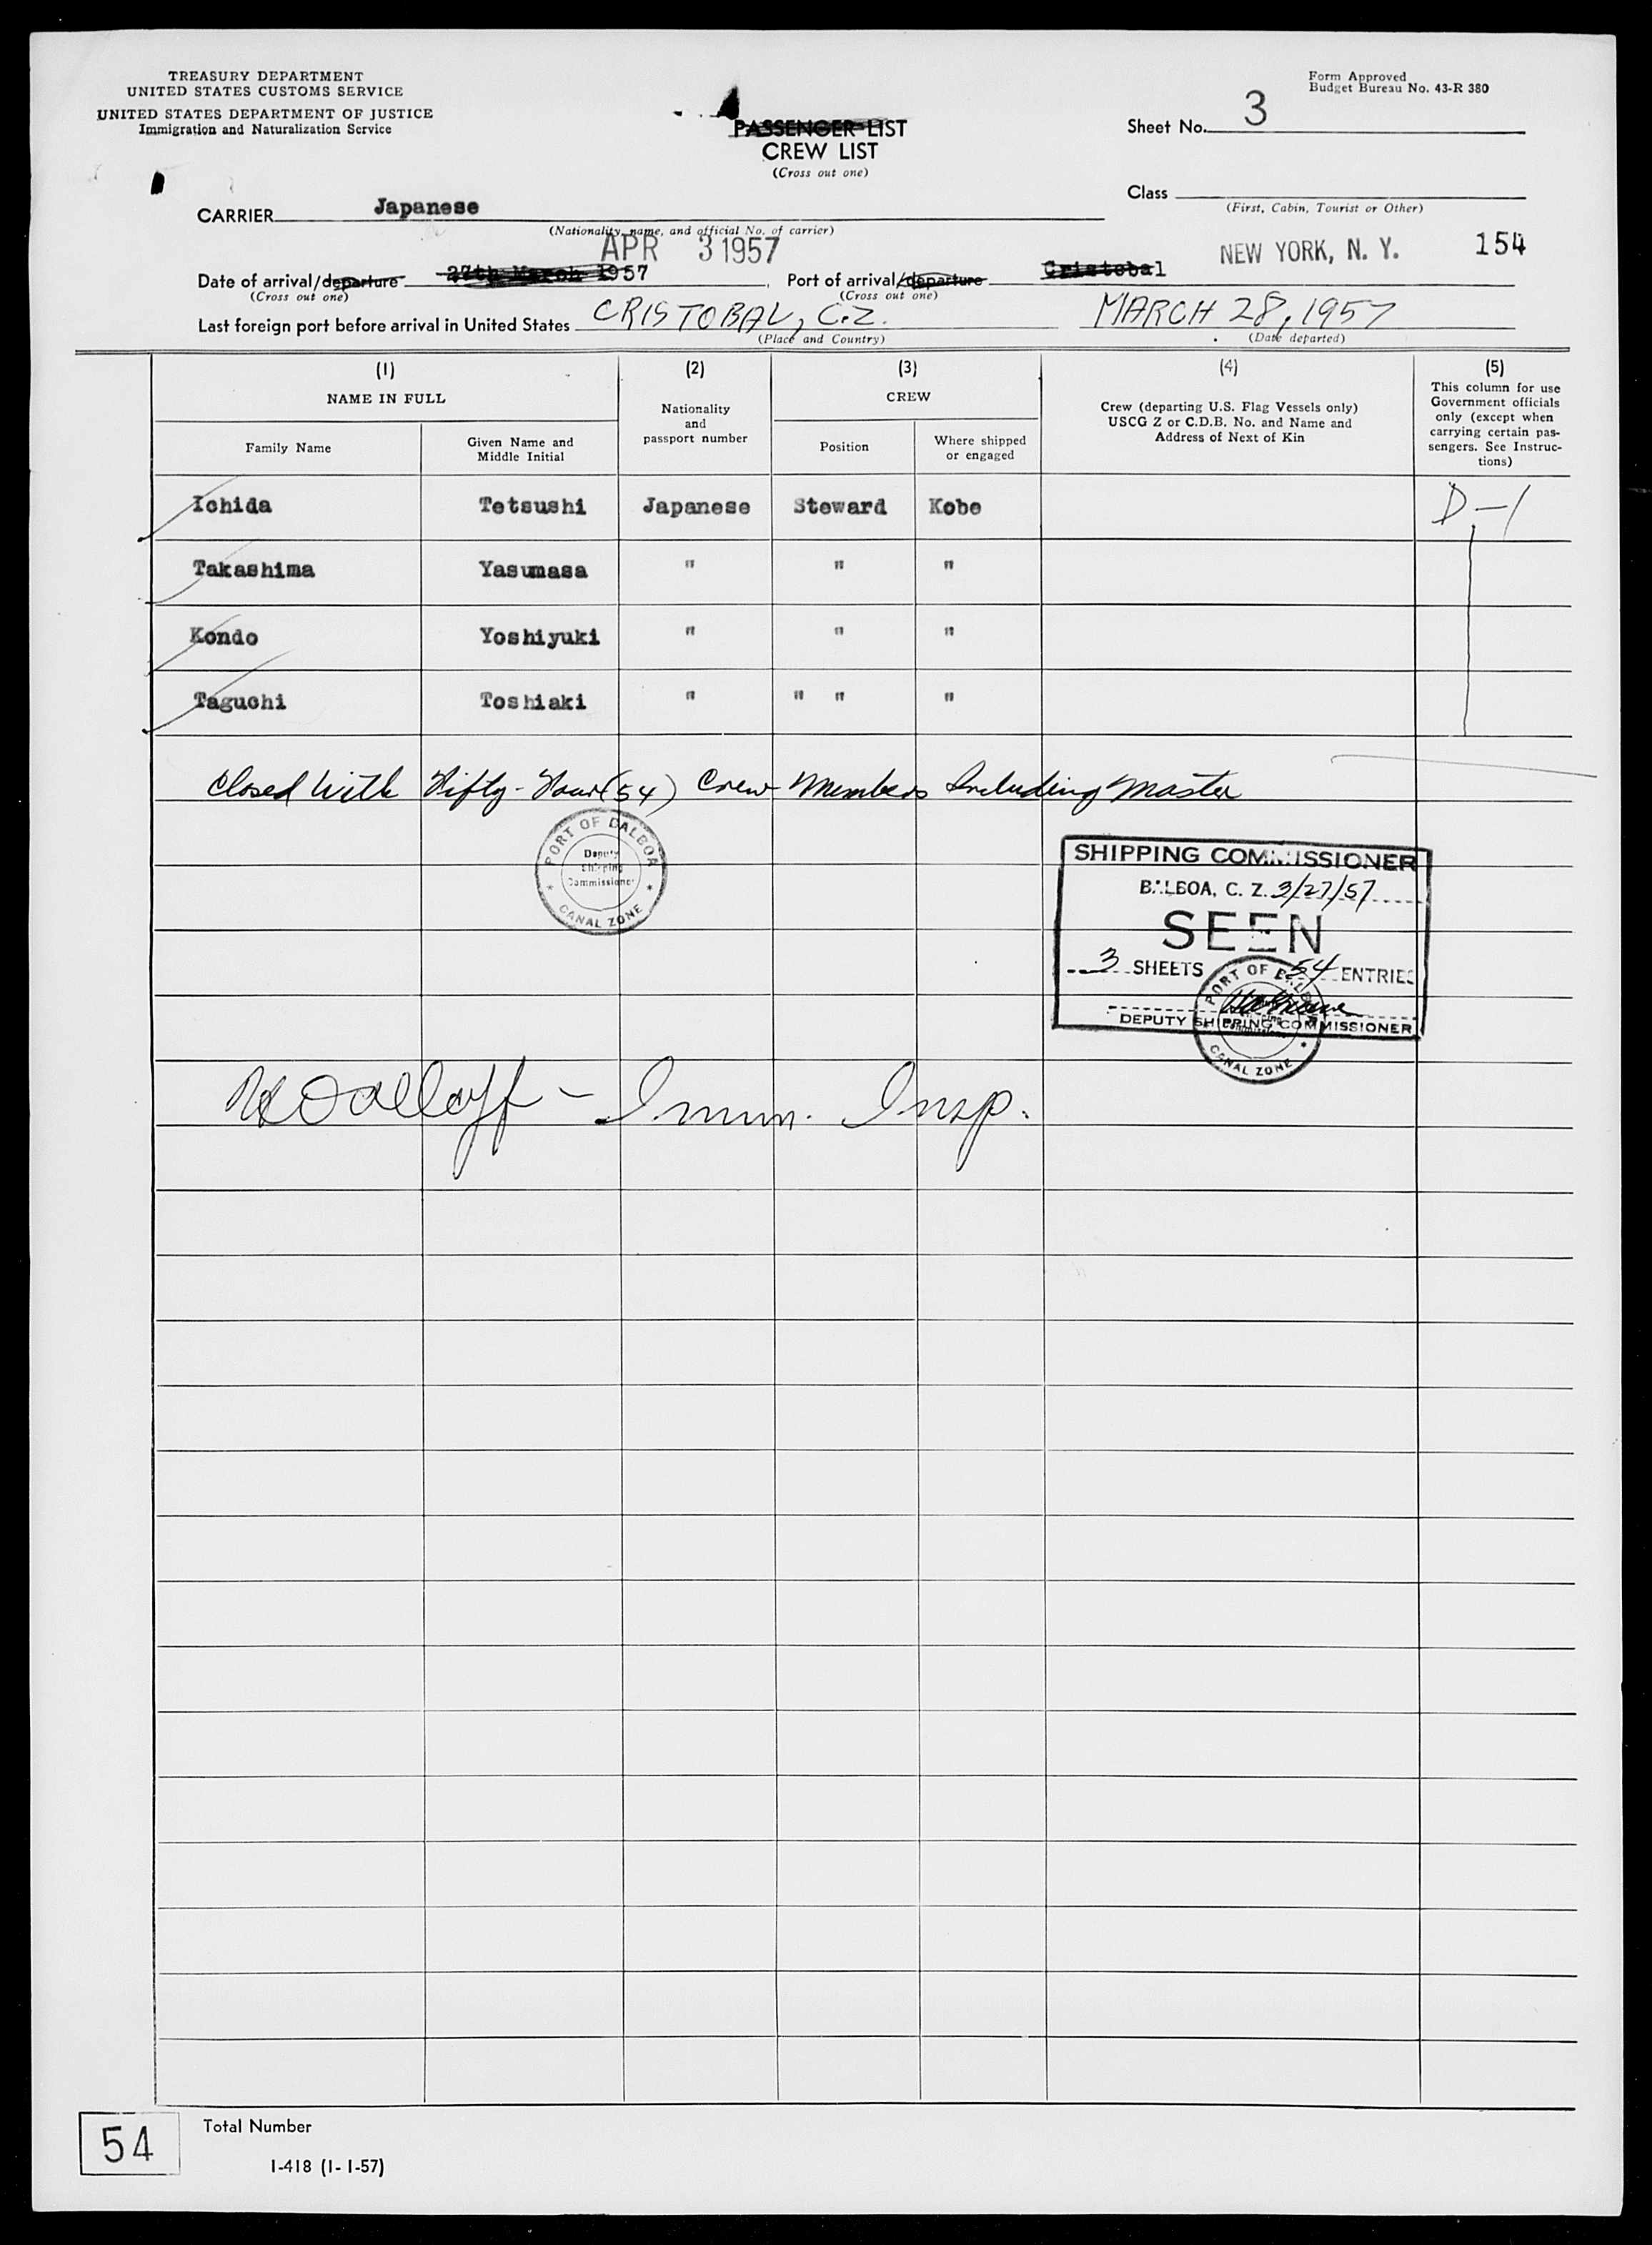 TREASURY DEPARTMENT
UNITED STATES CUSTOMS SERVICE
UNITED STATES DEPARTMENT OF JUSTICE
Immigration and Naturalization Service
Form Approved
Budget Bureau No. 43-R 380
PASSENGER LIST
CREW LIST
(Cross out one)
Sheet No. 3
Class
(First, Cabin, Tourist or Other)
CARRIER Japanese
(Nationality, name, and official No. of carrier)
APR 3 1957
NEW YORK, N. Y. 154
Date of arrival/departure 27th March 1957 Port of arrival/departure Cristobal
(Cross out one) (Cross out one)
Last foreign port before arrival in United States CRISTOBAL, C.Z. MARCH 28, 1957
(Place and Country) (Date departed)
(1) (2) (3) (4) (5)
NAME IN FULL
Family Name
Given Name and
Middle Initial
Nationality
and
passport number
CREW
Position
Where shipped
or engaged
Crew (departing U.S. Flag Vessels only)
USCG Z or C.D.B. No. and Name and
Address of Next of Kin
This column for use
Government officials
only (except when
carrying certain pas-
sengers. See Instruc-
tions)
Ichida Tetsushi Japanese Steward Kobe D-1
Takashima Yasumasa " " "
Kondo Yoshiyuki " " "
Taguchi Toshiaki " " " "
Closed With Fifty-Four (54) Crew Members Including Master
PORT OF BALBOA
Deputy
Shipping
Commissioner
CANAL ZONE
SHIPPING COMMISSIONER
BALBOA, C. Z. 3/27/57
SEEN
3 SHEETS 54 ENTRIES
DEPUTY SHIPPING COMMISSIONER
PORT OF BALBOA
CANAL ZONE
Imm. Insp.
54
Total Number
I-418 (1-1-57)